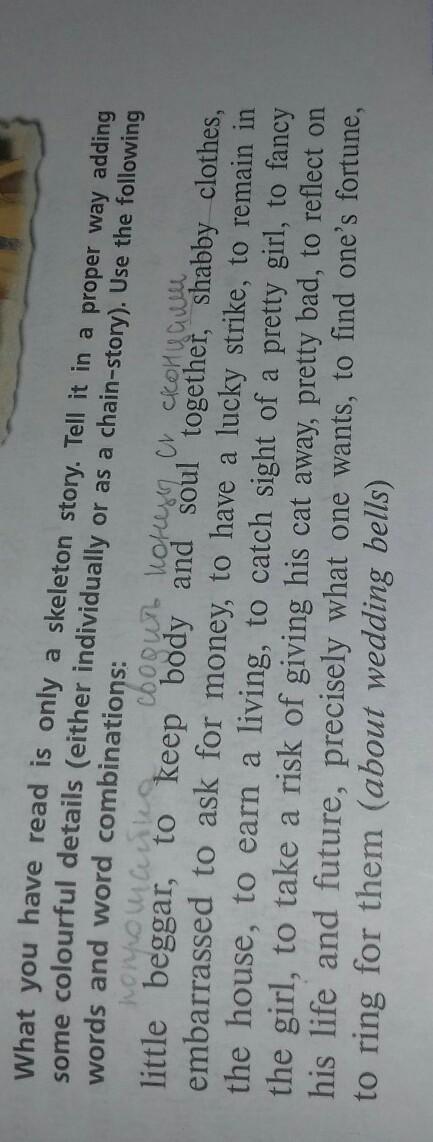 What you have read is only a skeleton story. Tell it in a proper way adding
some colourful details (either individually or as a chain-story). Use the following
words and word combinations:
попрошайка сводить концы с концами
little beggar, to keep body and soul together, shabby clothes,
embarrassed to ask for money, to have a lucky strike, to remain in
the house, to earn a living, to catch sight of a pretty girl, to fancy
the girl, to take a risk of giving his cat away, pretty bad, to reflect on
his life and future, precisely what one wants, to find one's fortune,
to ring for them (about wedding bells)